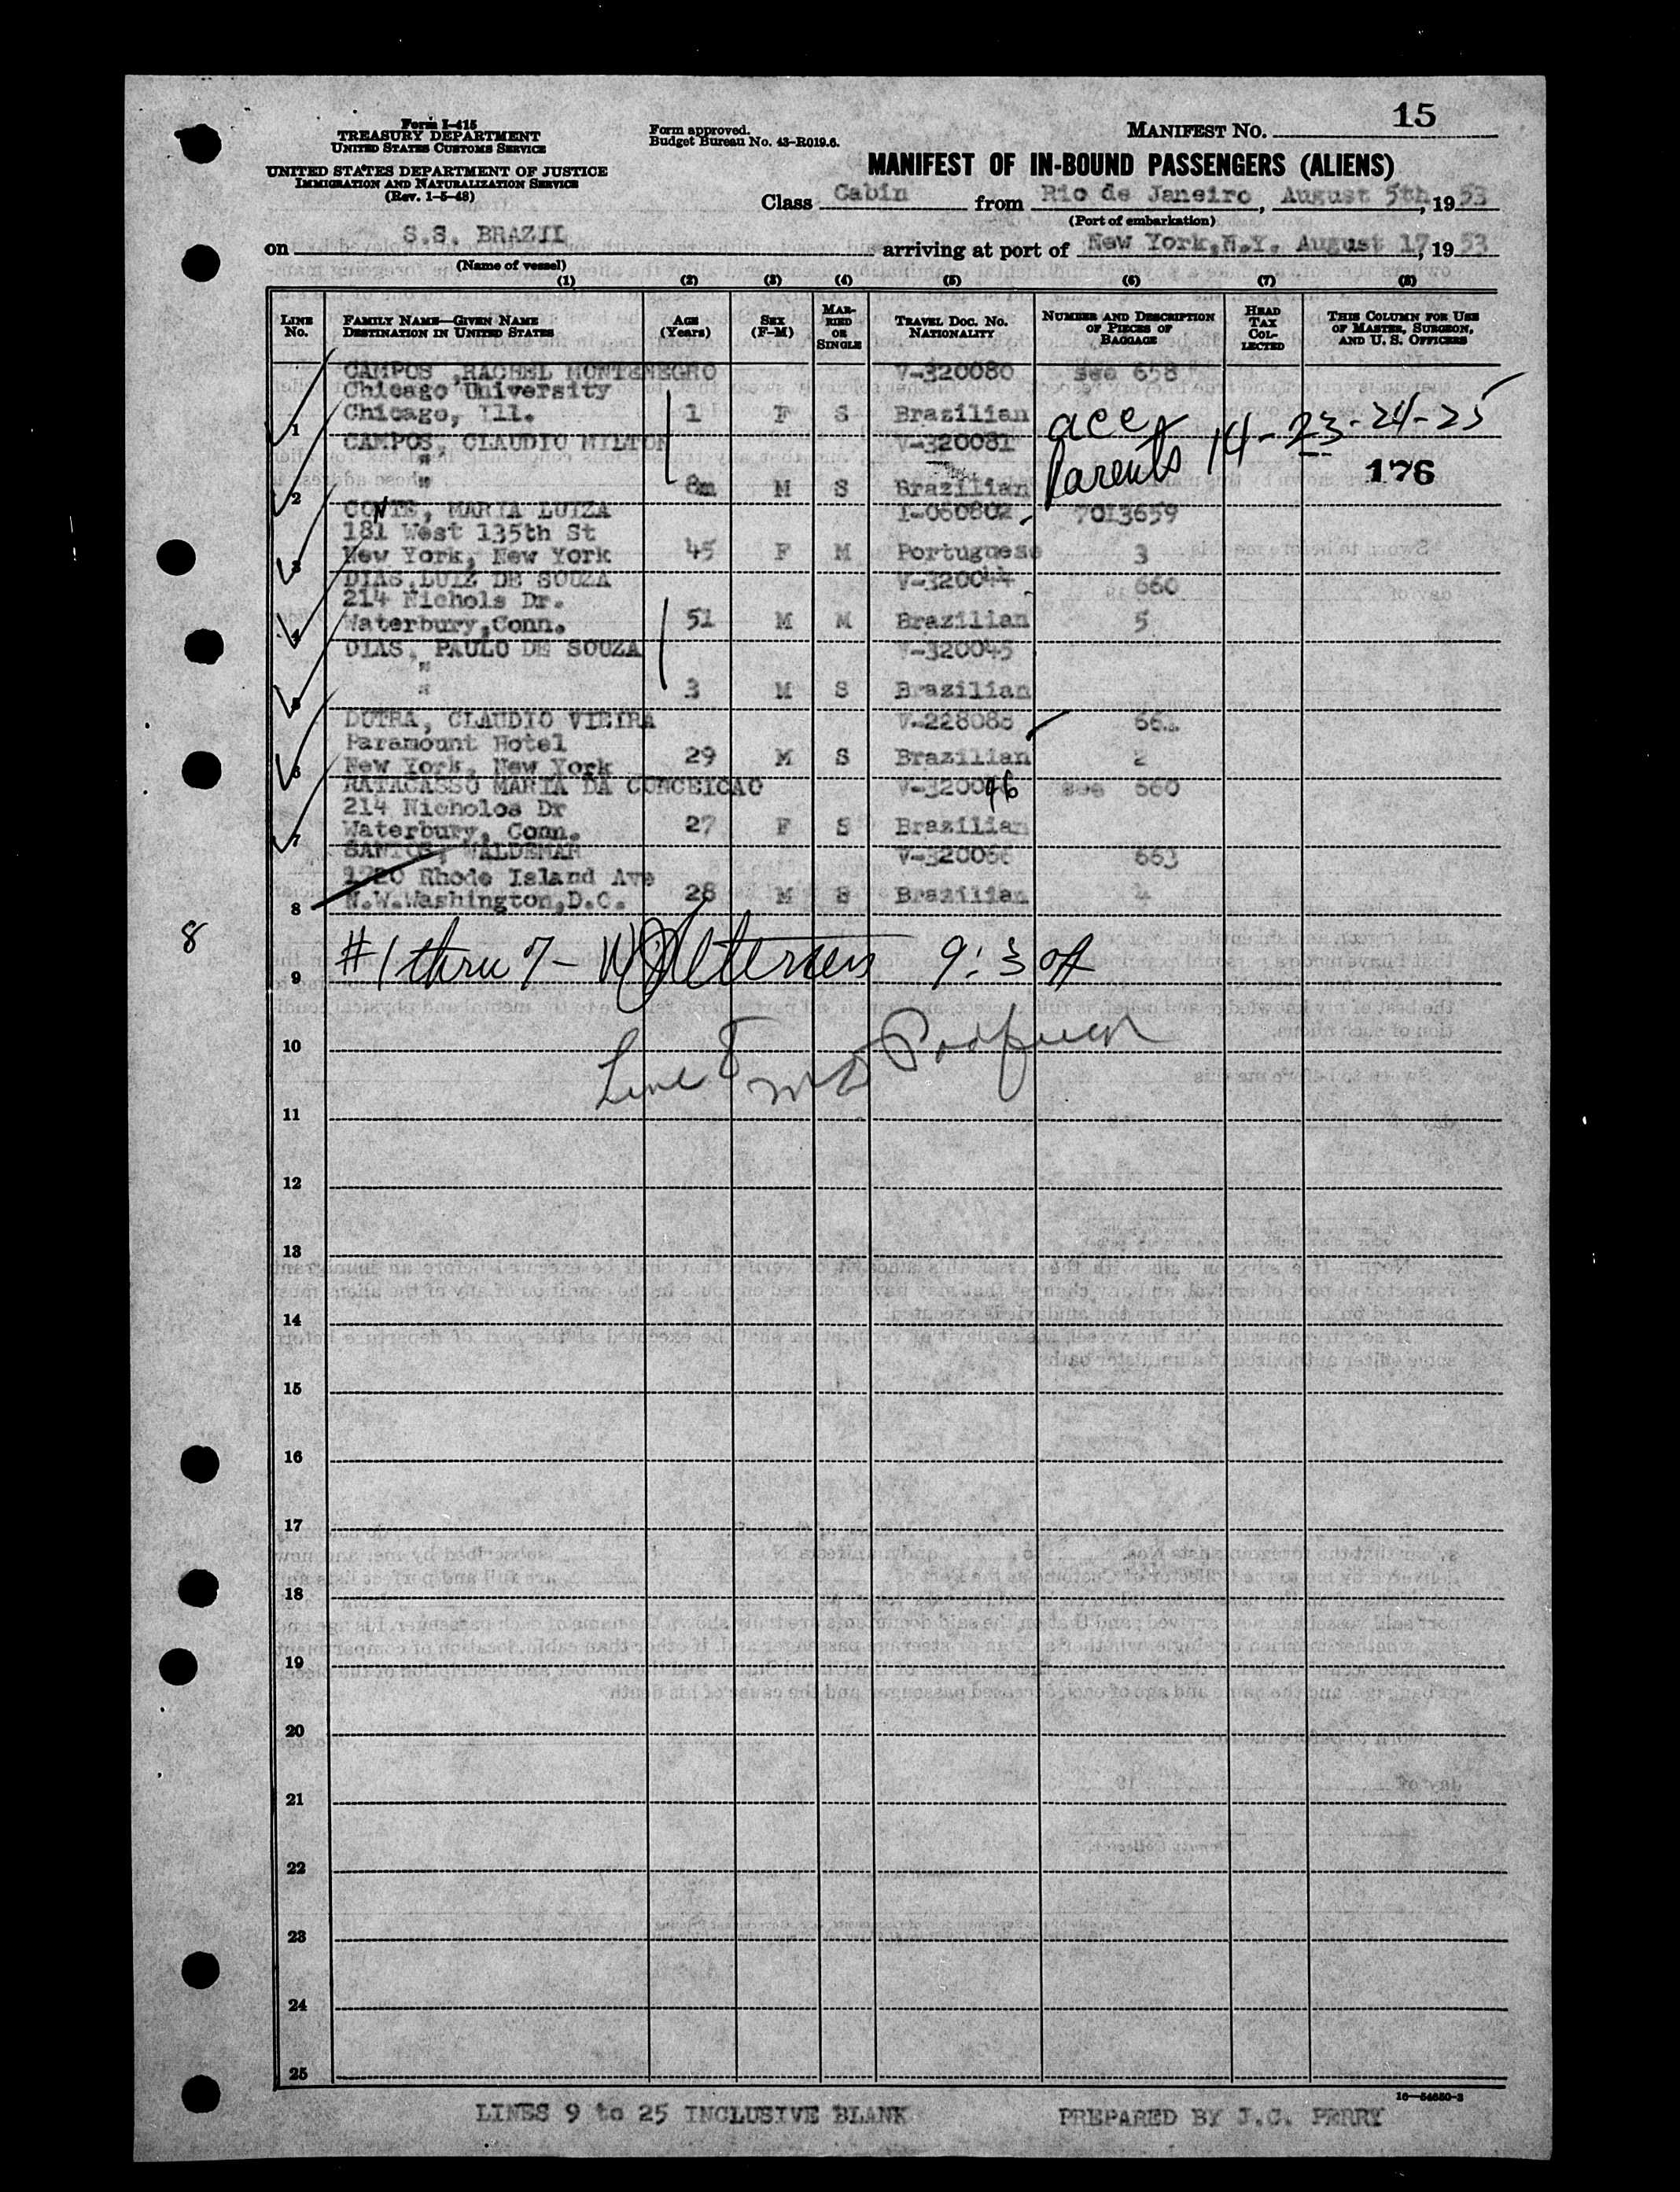 15
Form I-415
TREASURY DEPARTMENT
UNITED STATES CUSTOMS SERVICE
UNITED STATES DEPARTMENT OF JUSTICE
IMMIGRATION AND NATURALIZATION SERVICE
(Rev. 1-5-48)
Form approved.
Budget Bureau No. 43-R019.6.
MANIFEST NO.
MANIFEST OF IN-BOUND PASSENGERS (ALIENS)
Class Cabin from Rio de Janeiro, August 5th, 1953
(Port of embarkation)
on S.S. BRAZIL arriving at port of New York, N.Y. August 17, 1953
(Name of vessel)
(1) (2) (3) (4) (5) (6) (7) (8)
LINE No. FAMILY NAME—GIVEN NAME DESTINATION IN UNITED STATES AGE (Years) SEX (F-M) MARRIED OR SINGLE TRAVEL DOC. NO. NATIONALITY NUMBER AND DESCRIPTION OF PIECES OF BAGGAGE HEAD TAX COLLECTED THIS COLUMN FOR USE OF MASTER, SURGEON, AND U. S. OFFICERS
CAMPOS ,RACHEL MONTENEGRO V-320080 see 658
Chicago University
1 Chicago, Ill. 1 F S Brazilian acc
CAMPOS, CLAUDIO MILTON V-320081 Parents 14-23-24-25
"
2 " 8m M S Brazilian 176
CONTE, MARIA LUIZA I-060802 7013659
181 West 135th St
3 New York, New York 45 F M Portuguese 3
DIAS,LUIZ DE SOUZA V-320044 660
214 Nichols Dr.
4 Waterbury,Conn. 51 M M Brazilian 5
DIAS, PAULO DE SOUZA V-320045
"
5 " 3 M S Brazilian
DUTRA, CLAUDIO VIEIRA V-228088 66
Paramount Hotel
6 New York, New York 29 M S Brazilian 2
RATACASSO MARIA DA CONCEICAO V-320046 see 660
214 Nicholos Dr
7 Waterbury, Conn. 27 F S Brazilian
SANTOS, WALDEMAR V-320066 663
1720 Rhode Island Ave
8 N.W.Washington,D.C. 28 M S Brazilian 4
8
9 #1 thru 7 - 9:30A
10
Line 8
11
12
13
14
15
16
17
18
19
20
21
22
23
24
25
16—54650-3
LINES 9 to 25 INCLUSIVE BLANK PREPARED BY J.C. PERRY